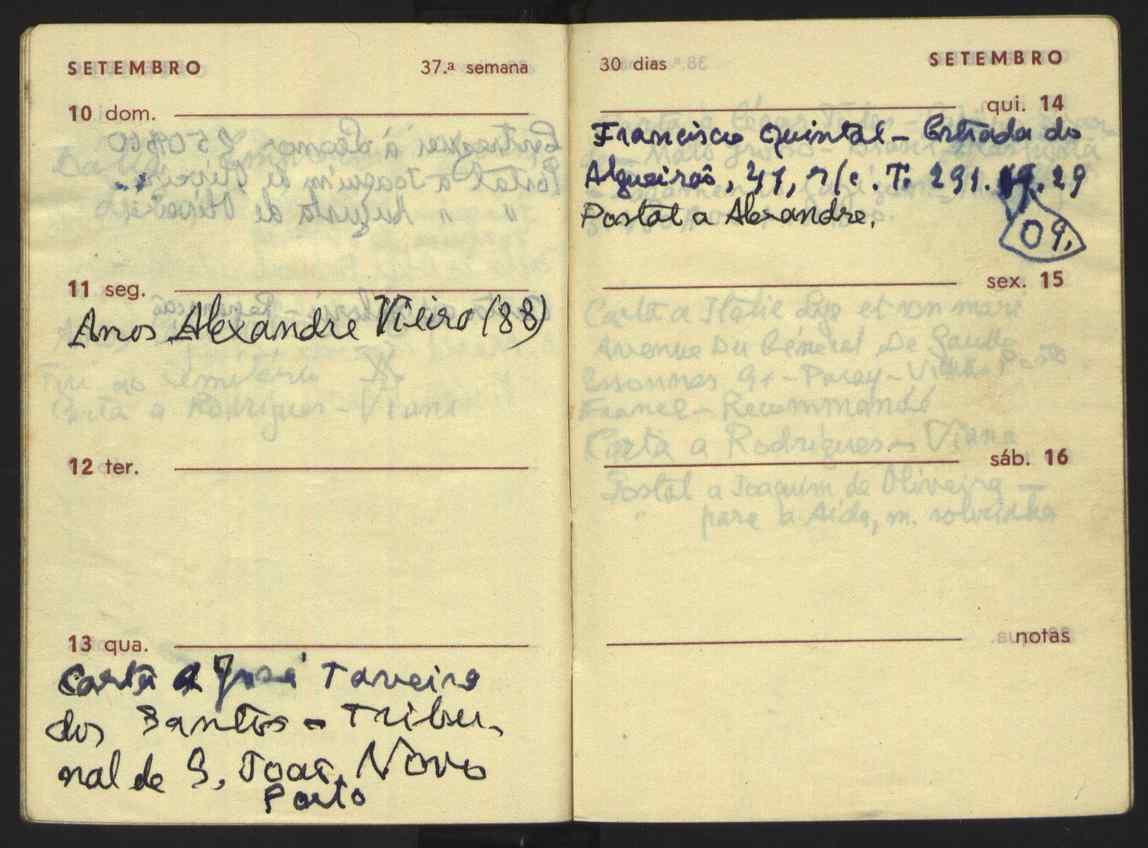 SETEMBRO 37.ª semana
10 dom.
11 seg.
Anos Alexandre Vieira (88)
Carta a Rodrigues - Viana
12 ter.
13 qua.
Carta a José Taveira
dos Santos - Tribu-
nal de S. João Novo
Porto
30 dias SETEMBRO
qui. 14
Francisco Quintal - Estrada do
Algueirão, 41, r/c. T. 291. .29
09.
Postal a Alexandre.
sex. 15
Carta a et son mari
Avenue Du Général De Gaulle
Essonnes 91 - Paray - Vieille Poste
France - Recommandé
Carta a Rodrigues - Viana
sáb. 16
Postal a Joaquim de Oliveira -
para a Aida, m. sobrinha
notas